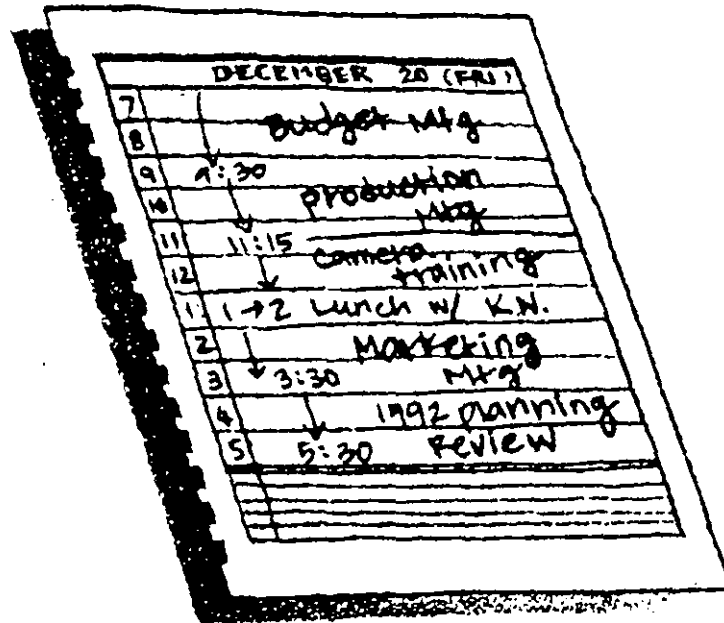 DECEMBER 20 (FRI)
7
8 Budget Mtg
9 9:30
10 production Mtg
11 11:15
12 camera training
1 1→2 Lunch w/ K.N.
2 Marketing
3 3:30 Mtg
4 1992 planning
5 5:30 Review